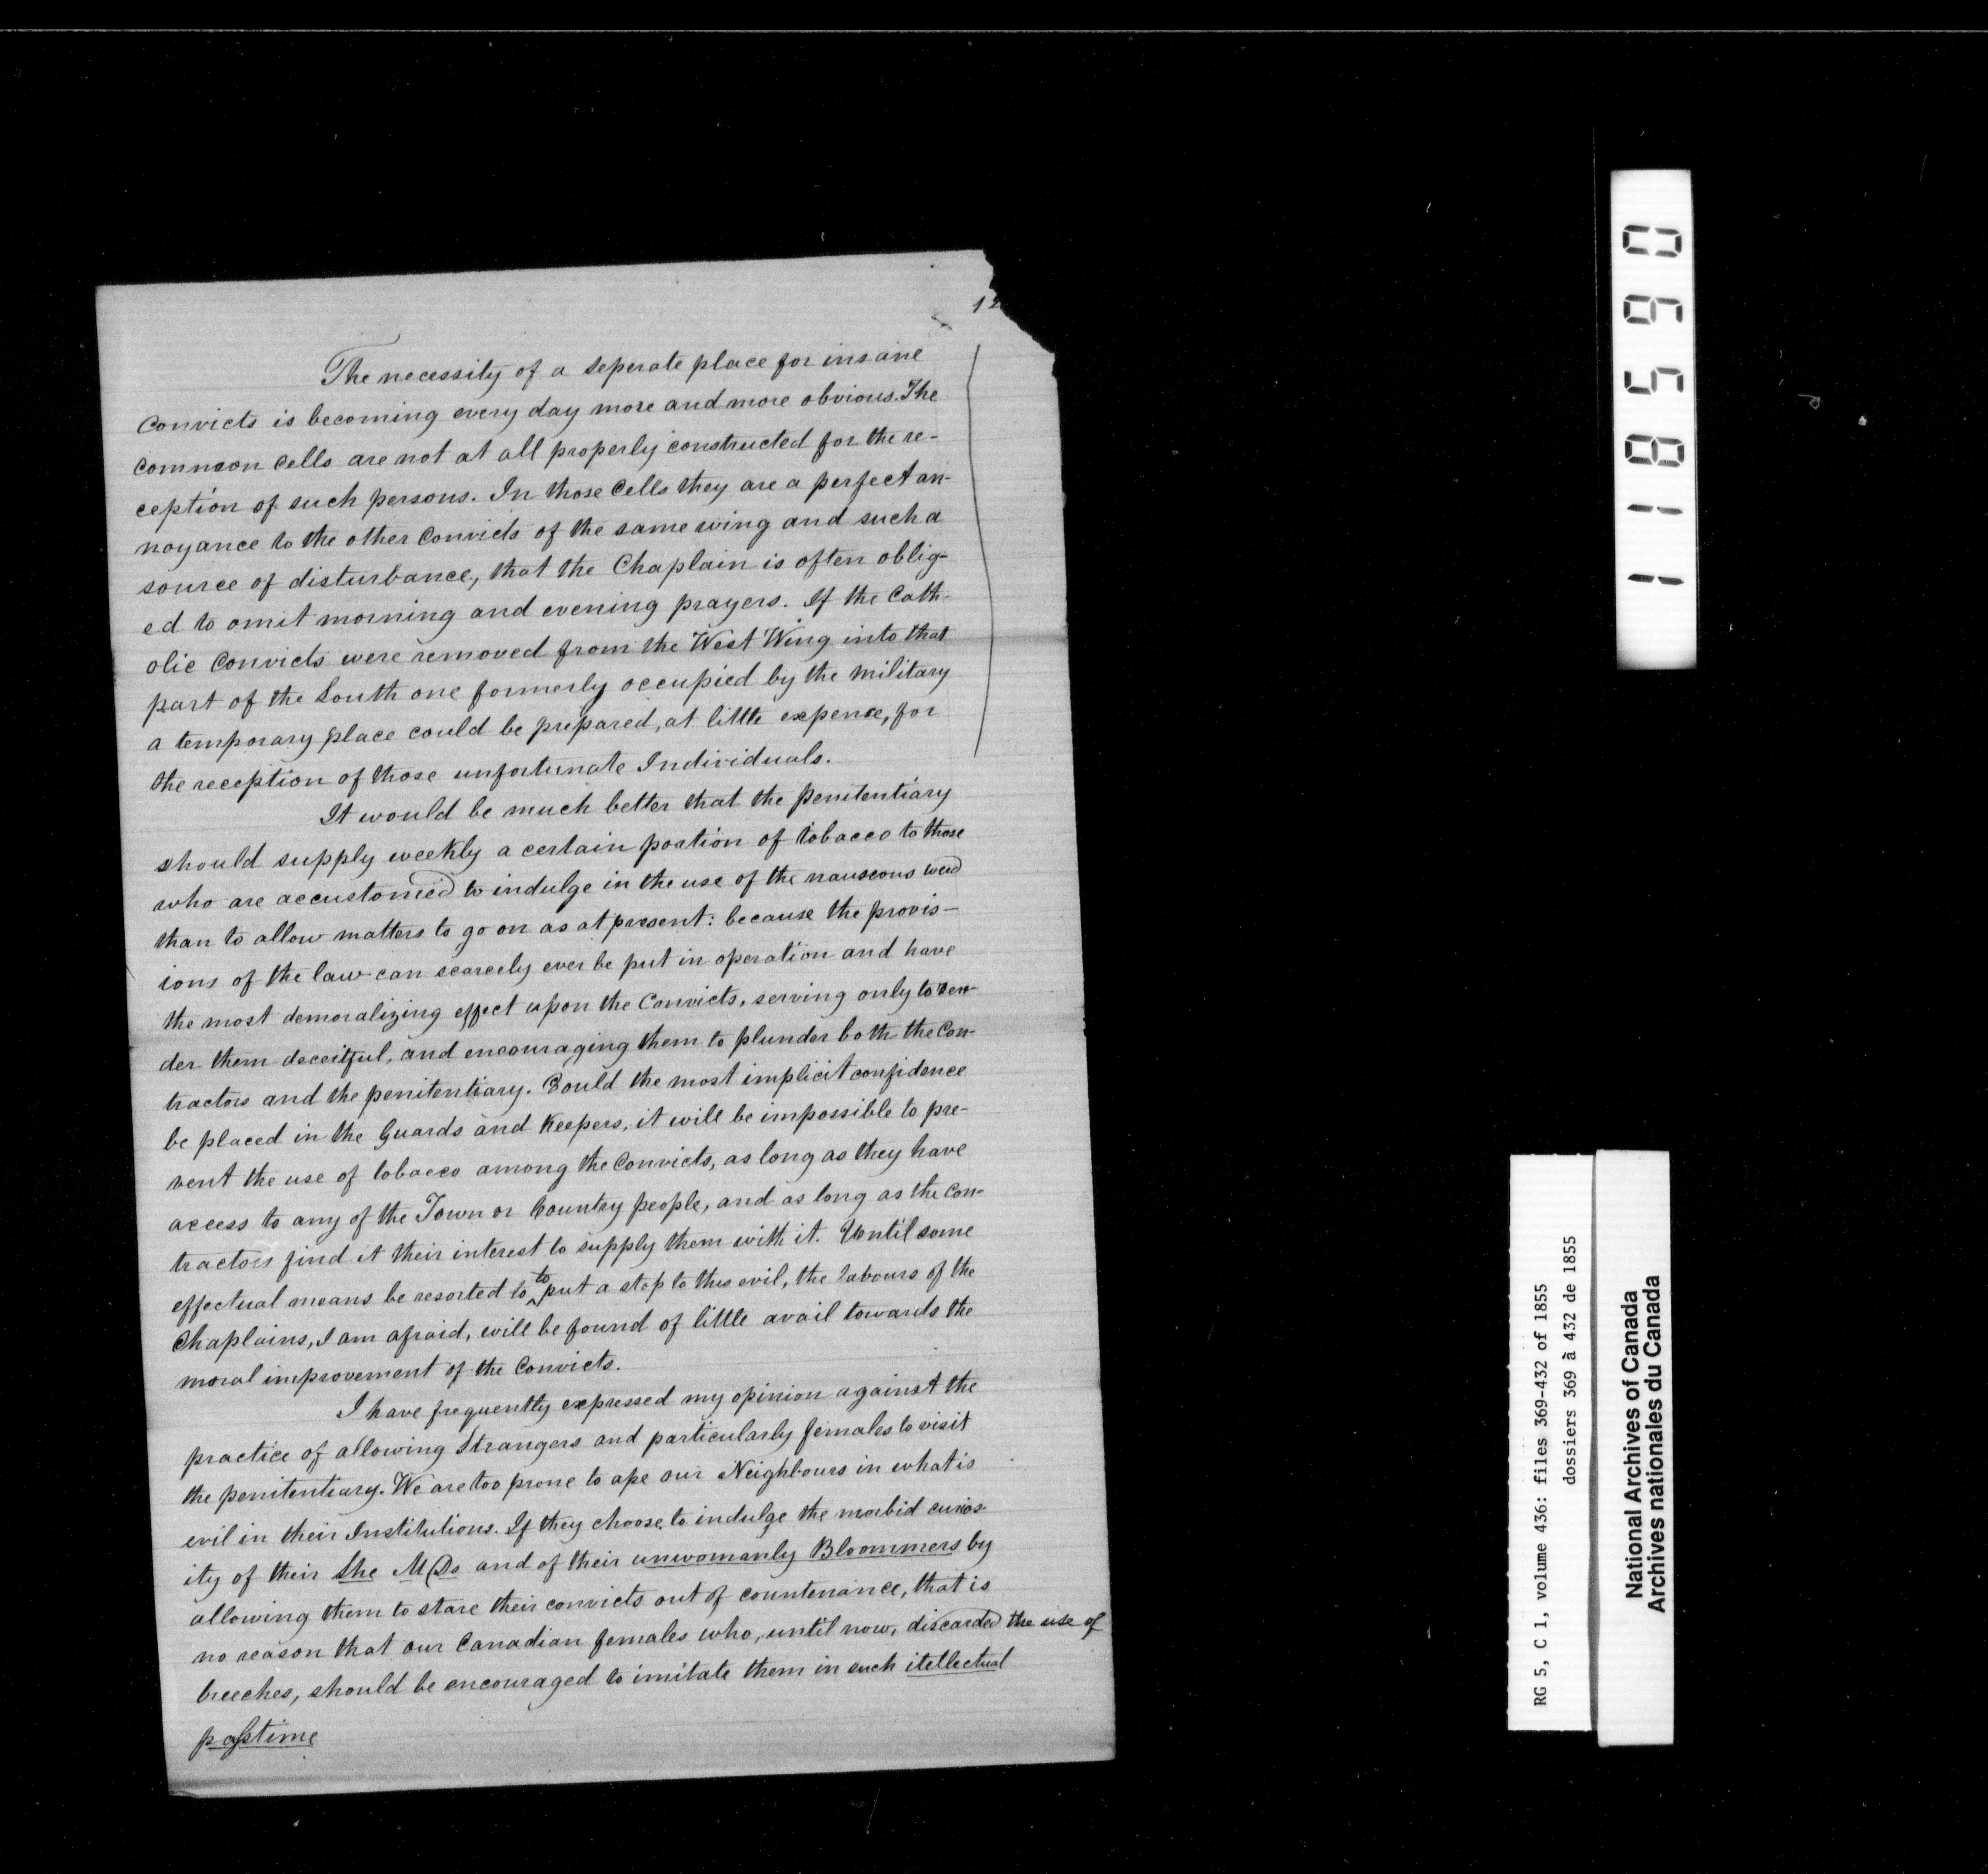 12
The necessity of a seperate place for insane
Convicts is becoming every day more and more obvious. The
common Cells are not at all properly constructed for the re-
ception of such persons. In those Cells they are a perfect an-
noyance to the other Convicts of the same wing and such a
source of disturbance, that the Chaplain is often oblig-
ed to omit morning and evening prayers. If the Cath-
olic Convicts were removed from the West Wing into that
part of the South one formerly occupied by the military
a temporary place could be prepared, at little expense, for
the reception of those unfortunate Individuals.
It would be much better that the penitentiary
should supply weekly a certain portion of tobacco to those
who are accustomed to indulge in the use of the nauseous weed
than to allow matters to go on as at present: because the provis-
ions of the law can scarcely ever be put in operation and have
the most demoralizing effect upon the Convicts, serving only to ren-
der them deceitful, and encouraging them to plunder both the Con-
tractors and the penitentiary. Could the most implicit confidence
be placed in the Guards and Keepers, it will be impossible to pre-
vent the use of tobacco among the Convicts, as long as they have
access to any of the Town or Country people, and as long as the Con-
tractors find it their interest to supply them with it. Until some
effectual means be resorted to to put a stop to this evil, the labours of the
Chaplains, I am afraid, will be found of little avail towards the
moral improvement of the Convicts.
I have frequently expressed my opinion against the
practice of allowing Strangers and particularly females to visit
the penitentiary. We are too prone to ape our Neighbours in what is
evil in their Institutions. If they choose to indulge the morbid curios-
ity of their She M Ds and of their unwomanly Bloommers by
allowing them to stare their convicts out of countenance, that is
no reason that our Canadian females who, until now, discarded the use of
breeches, should be encouraged to imitate them in such itellectual
pastime
118590
RG 5, C 1, volume 436: files 369-432 of 1855
dossiers 369 à 432 de 1855
National Archives of Canada
Archives nationales du Canada